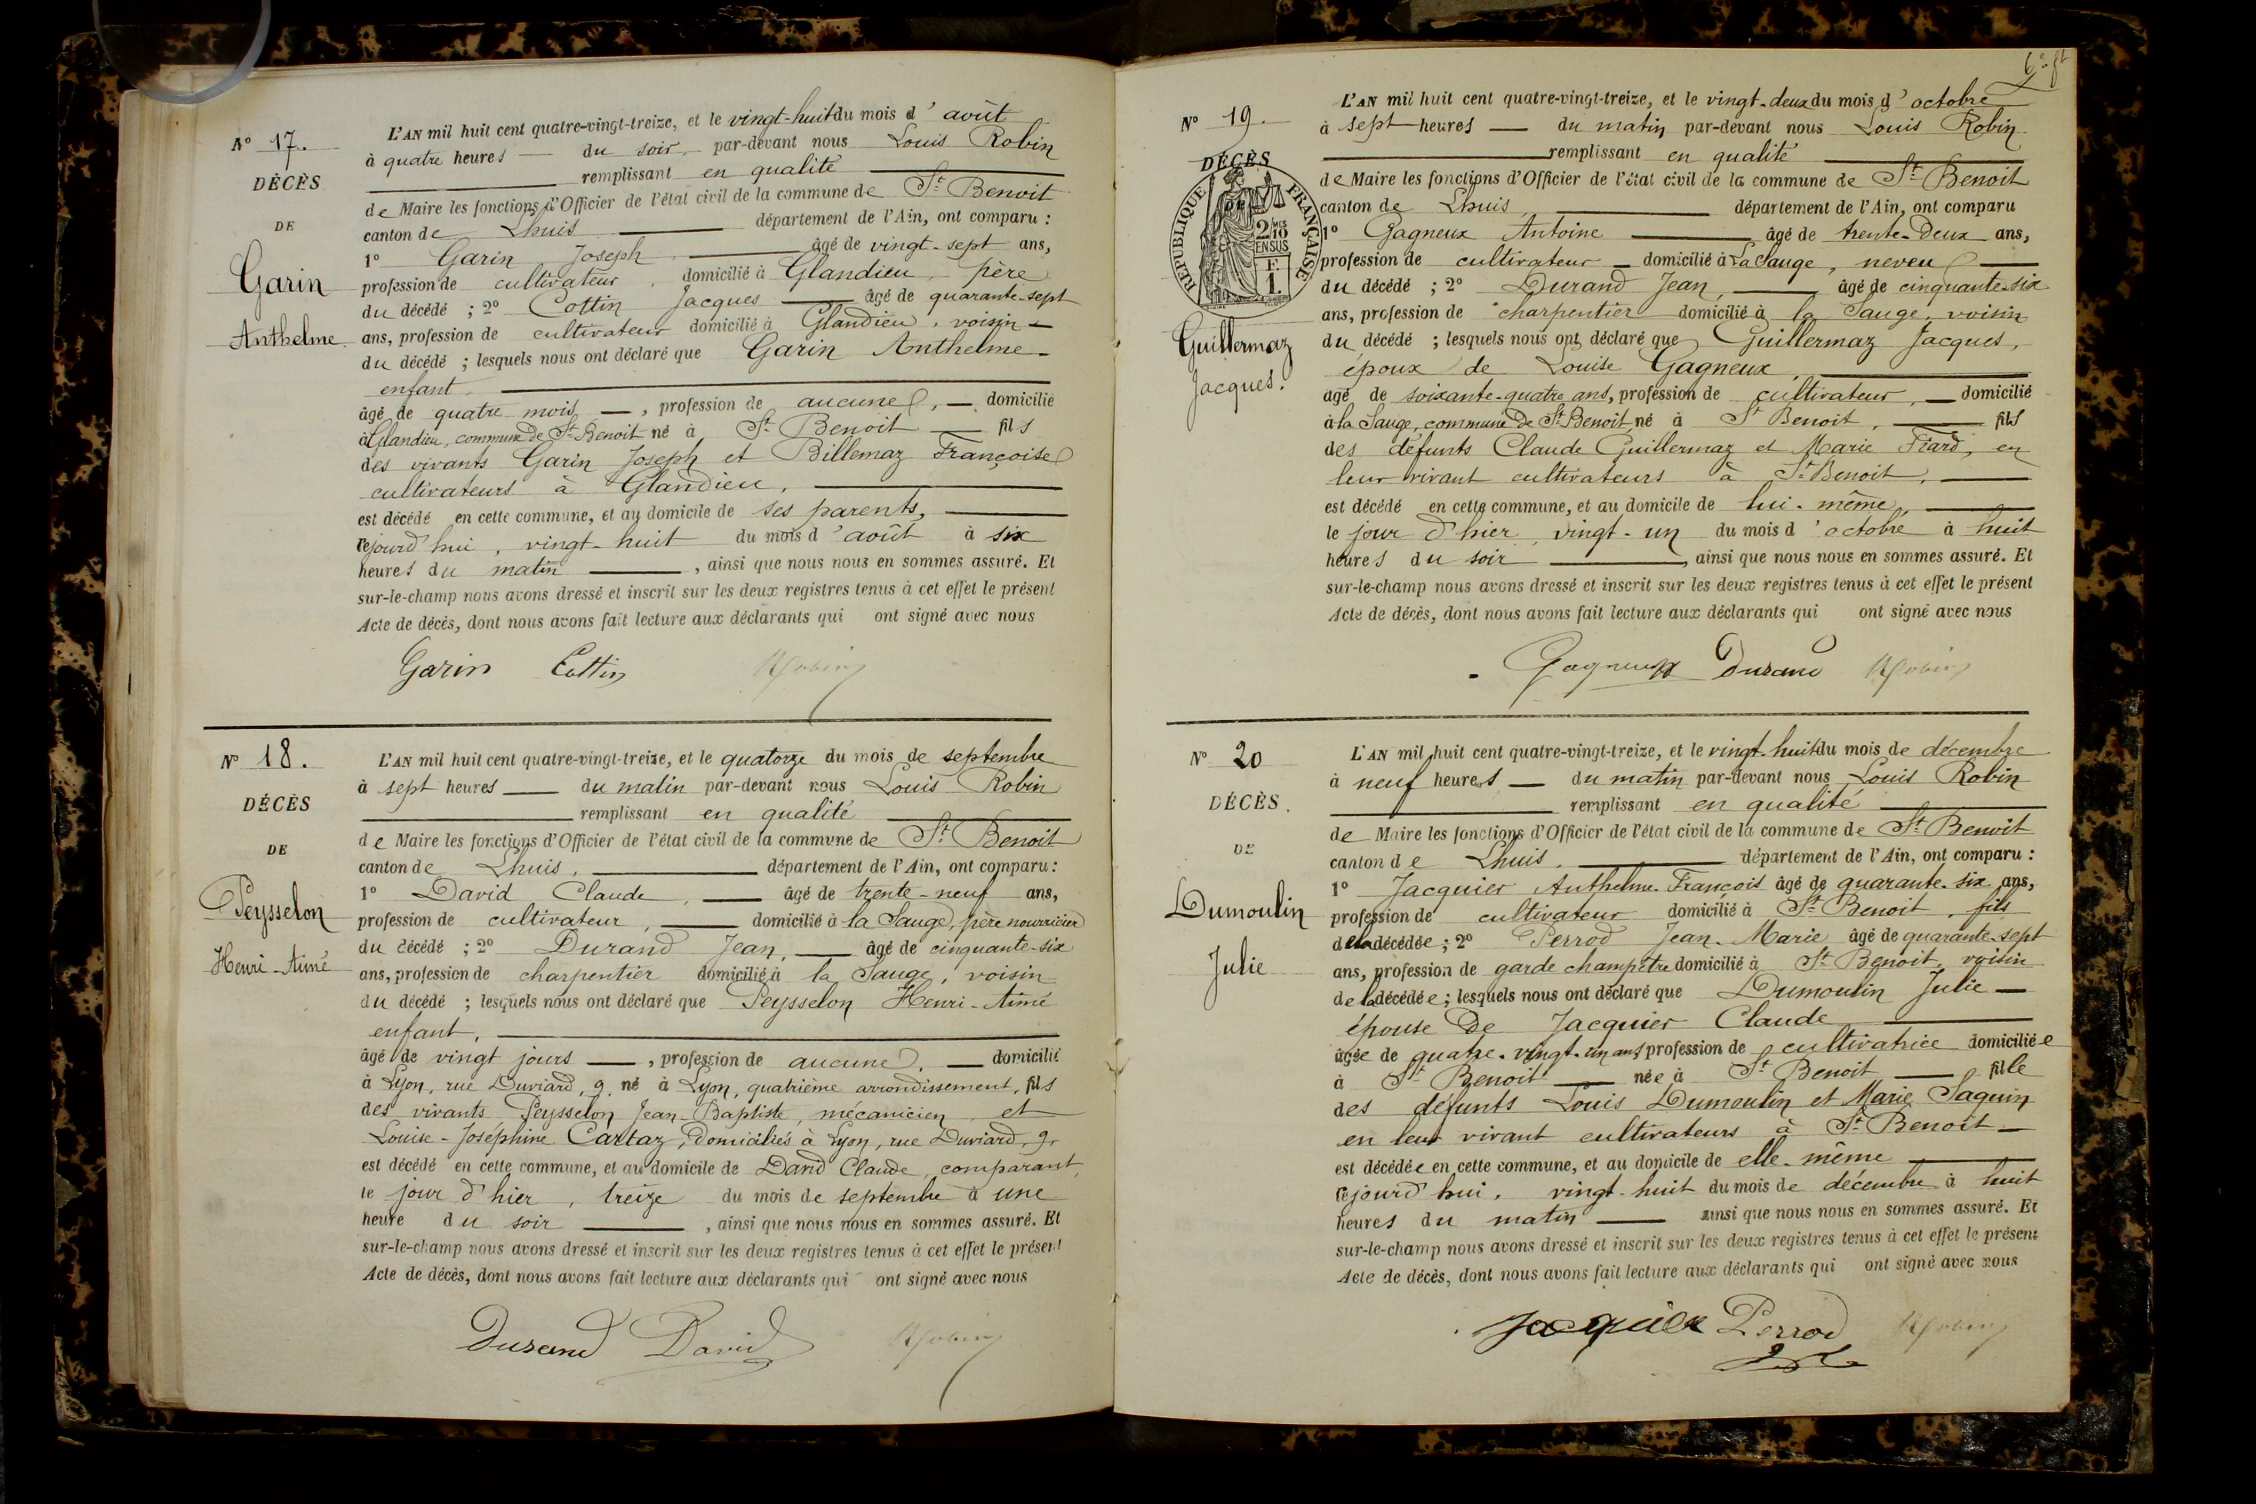 N° 17.
DÉCÈS
DE
Garin
Anthelme.
L'AN mil huit cent quatre-vingt-treize, et le vingt-huit du mois d'août
à quatre heures — du soir, par-devant nous Louis Robin
remplissant en qualité
de Maire les fonctions d'Officier de l'état civil de la commune de St. Benoit
canton de Lhuis département de l'Ain, ont comparu :
1° Garin Joseph, âgé de vingt-sept ans,
profession de cultivateur, domicilié à Glandieu, père
du décédé ; 2° Cottin Jacques âgé de quarante-sept
ans, profession de cultivateur domicilié à Glandieu, voisin —
du décédé ; lesquels nous ont déclaré que Garin Anthelme —
enfant,
âgé de quatre mois —, profession de aucune, — domicilié
à Glandieu, commune de St. Benoit né à St. Benoit — fils
des vivants Garin Joseph et Billemaz Françoise
cultivateurs à Glandieu,
est décédé en cette commune, et au domicile de ses parents,
cejourd'hui, vingt-huit du mois d'août à six
heures du matin, ainsi que nous nous en sommes assuré. Et
sur-le-champ nous avons dressé et inscrit sur les deux registres tenus à cet effet le présent
Acte de décès, dont nous avons fait lecture aux déclarants qui ont signé avec nous
Garin Cottin Robin
N° 18.
DÉCÈS
DE
Peysselon
Henri-Aimé
L'AN mil huit cent quatre-vingt-treize, et le quatorze du mois de septembre
à sept heures — du matin par-devant nous Louis Robin
remplissant en qualité
de Maire les fonctions d'Officier de l'état civil de la commune de St. Benoit
canton de Lhuis, département de l'Ain, ont comparu :
1° David Claude, — âgé de trente-neuf ans,
profession de cultivateur, domicilié à la Sauge, père nourricier
du décédé ; 2° Durand Jean, — âgé de cinquante-six
ans, profession de charpentier domicilié à la Sauge, voisin
du décédé ; lesquels nous ont déclaré que Peysselon Henri-Aimé
enfant,
âgé de vingt jours —, profession de aucune, — domicilié
à Lyon, rue Duviard, 9, né à Lyon, quatrième arrondissement, fils
des vivants Peysselon Jean-Baptiste, mécanicien, et
Louise-Joséphine Cartaz, domiciliés à Lyon, rue Duviard, 9,
est décédé en cette commune, et au domicile de David Claude, comparant,
le jour d'hier, treize du mois de septembre à une
heure du soir, ainsi que nous nous en sommes assuré. Et
sur-le-champ nous avons dressé et inscrit sur les deux registres tenus à cet effet le présent
Acte de décès, dont nous avons fait lecture aux déclarants qui ont signé avec nous
Durand David Robin
N° 19.
DÉCÈS
DE
RÉPUBLIQUE FRANÇAISE
2/10 MES
EN SUS
F.
1.
Guillermaz
Jacques.
L'AN mil huit cent quatre-vingt-treize, et le vingt-deux du mois d'octobre
à sept heures — du matin par-devant nous Louis Robin
remplissant en qualité
de Maire les fonctions d'Officier de l'état civil de la commune de St. Benoit
canton de Lhuis, département de l'Ain, ont comparu
1° Gagneux Antoine âgé de trente-deux ans,
profession de cultivateur — domicilié à La Sauge, neveu
du décédé ; 2° Durand Jean, âgé de cinquante-six
ans, profession de charpentier domicilié à la Sauge, voisin
du décédé ; lesquels nous ont déclaré que Guillermaz Jacques,
époux de Louise Gagneux,
âgé de soixante-quatre ans, profession de cultivateur, — domicilié
à la Sauge, commune de St. Benoit né à St. Benoit, fils
des défunts Claude Guillermaz et Marie Fiard, en
leur vivant cultivateurs à St. Benoit,
est décédé en cette commune, et au domicile de lui-même,
le jour d'hier, vingt-un du mois d'octobre, à huit
heures du soir, ainsi que nous nous en sommes assuré. Et
sur-le-champ nous avons dressé et inscrit sur les deux registres tenus à cet effet le présent
Acte de décès, dont nous avons fait lecture aux déclarants qui ont signé avec nous
Gagneux Durand Robin
N° 20
DÉCÈS.
DE
Dumoulin
Julie
L'AN mil huit cent quatre-vingt-treize, et le vingt-huit du mois de décembre
à neuf heures — du matin par-devant nous Louis Robin
remplissant en qualité
de Maire les fonctions d'Officier de l'état civil de la commune de St. Benoit
canton de Lhuis, département de l'Ain, ont comparu :
1° Jacquier Anthelme-François âgé de quarante-six ans,
profession de cultivateur domicilié à St. Benoit, fils
de la décédée ; 2° Perrod Jean-Marie âgé de quarante-sept
ans, profession de garde champêtre domicilié à St. Benoit, voisin
de la décédée ; lesquels nous ont déclaré que Dumoulin Julie —
épouse de Jacquier Claude
âgée de quatre-vingt-un ans profession de cultivatrice domiciliée
à St. Benoit née à St. Benoit fille
des défunts Louis Dumoulin et Marie Saquin
en leur vivant cultivateurs à St. Benoit —
est décédée en cette commune, et au domicile de elle-même
cejourd'hui, vingt-huit du mois de décembre à huit
heures du matin — ainsi que nous nous en sommes assuré. Et
sur-le-champ nous avons dressé et inscrit sur les deux registres tenus à cet effet le présent
Acte de décès, dont nous avons fait lecture aux déclarants qui ont signé avec nous
Jacquier Perrod Robin